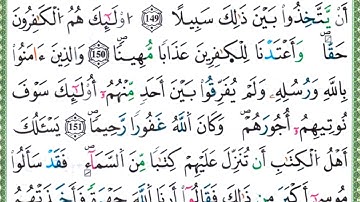 أَن يَتَّخِذُوا۟ بَيْنَ ذَٰلِكَ سَبِيلًا ١٤٩ أُو۟لَٰٓئِكَ هُمُ ٱلْكَٰفِرُونَ
حَقًّا وَأَعْتَدْنَا لِلْكَٰفِرِينَ عَذَابًا مُّهِينًا ١٥٠ وَالَّذِينَ ءَامَنُوا۟
بِاللَّهِ وَرُسُلِهِۦ وَلَمْ يُفَرِّقُوا۟ بَيْنَ أَحَدٍ مِّنْهُمُۥٓ أُو۟لَٰٓئِكَ سَوْفَ
نُوتِيهِمُۥٓ أُجُورَهُمْ وَكَانَ اللَّهُ غَفُورًا رَّحِيمًا ١٥١ يَسْـَٔلُكَ
أَهْلُ الْكِتَٰبِ أَن تُنَزِّلَ عَلَيْهِمْ كِتَٰبًا مِّنَ السَّمَآءِ فَقَدْ سَأَلُوا۟
مُوسِىٰٓ أَكْبَرَ مِن ذَٰلِكَ فَقَالُوٓا۟ أَرِنَا اللَّهَ جَهْرَةً فَأَخَذَتْهُمُ